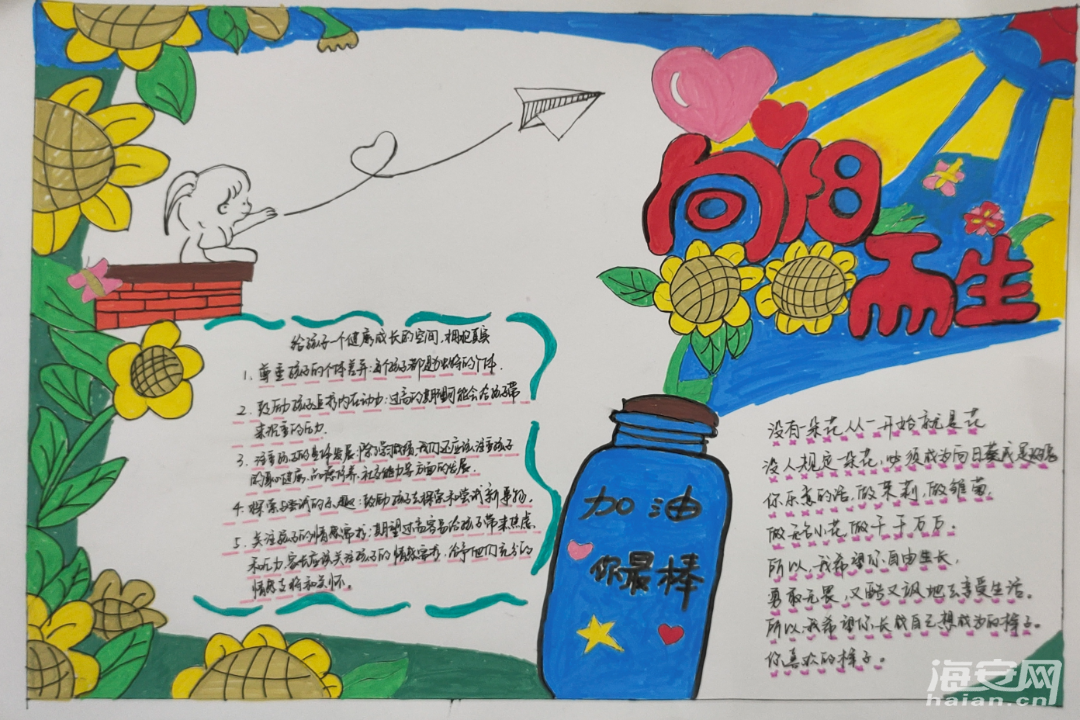 向阳而生
给孩子一个健康成长的空间,拥抱真实
1、尊重孩子的个体差异:每个孩子都是独特的个体.
2、鼓励孩子追求内在动力:过高的期望可能会给孩子带
来沉重的压力.
3、注重孩子的整体发展:除了学习成绩,我们还应该注重孩子
的身心健康、品德培养、社交能力等方面的发展.
4、探索与尝试的乐趣:鼓励孩子去探索和尝试新事物.
5、关注孩子的情感需求:期望过高容易给孩子带来焦虑
和压力,家长应该关注孩子的情感需求,给予他们充分的
情感支持和关怀。
加油
你最棒
没有一朵花从一开始就是花
没人规定一朵花,必须成为向日葵或是玫瑰
你乐意的话,做茉莉,做雏菊,
做无名小花,做千千万万。
所以,我希望你自由生长,
勇敢无畏,又酷又飒地去享受生活。
所以,我希望你长成自己想成为的样子。
你喜欢的样子。
海安网
haian.cn